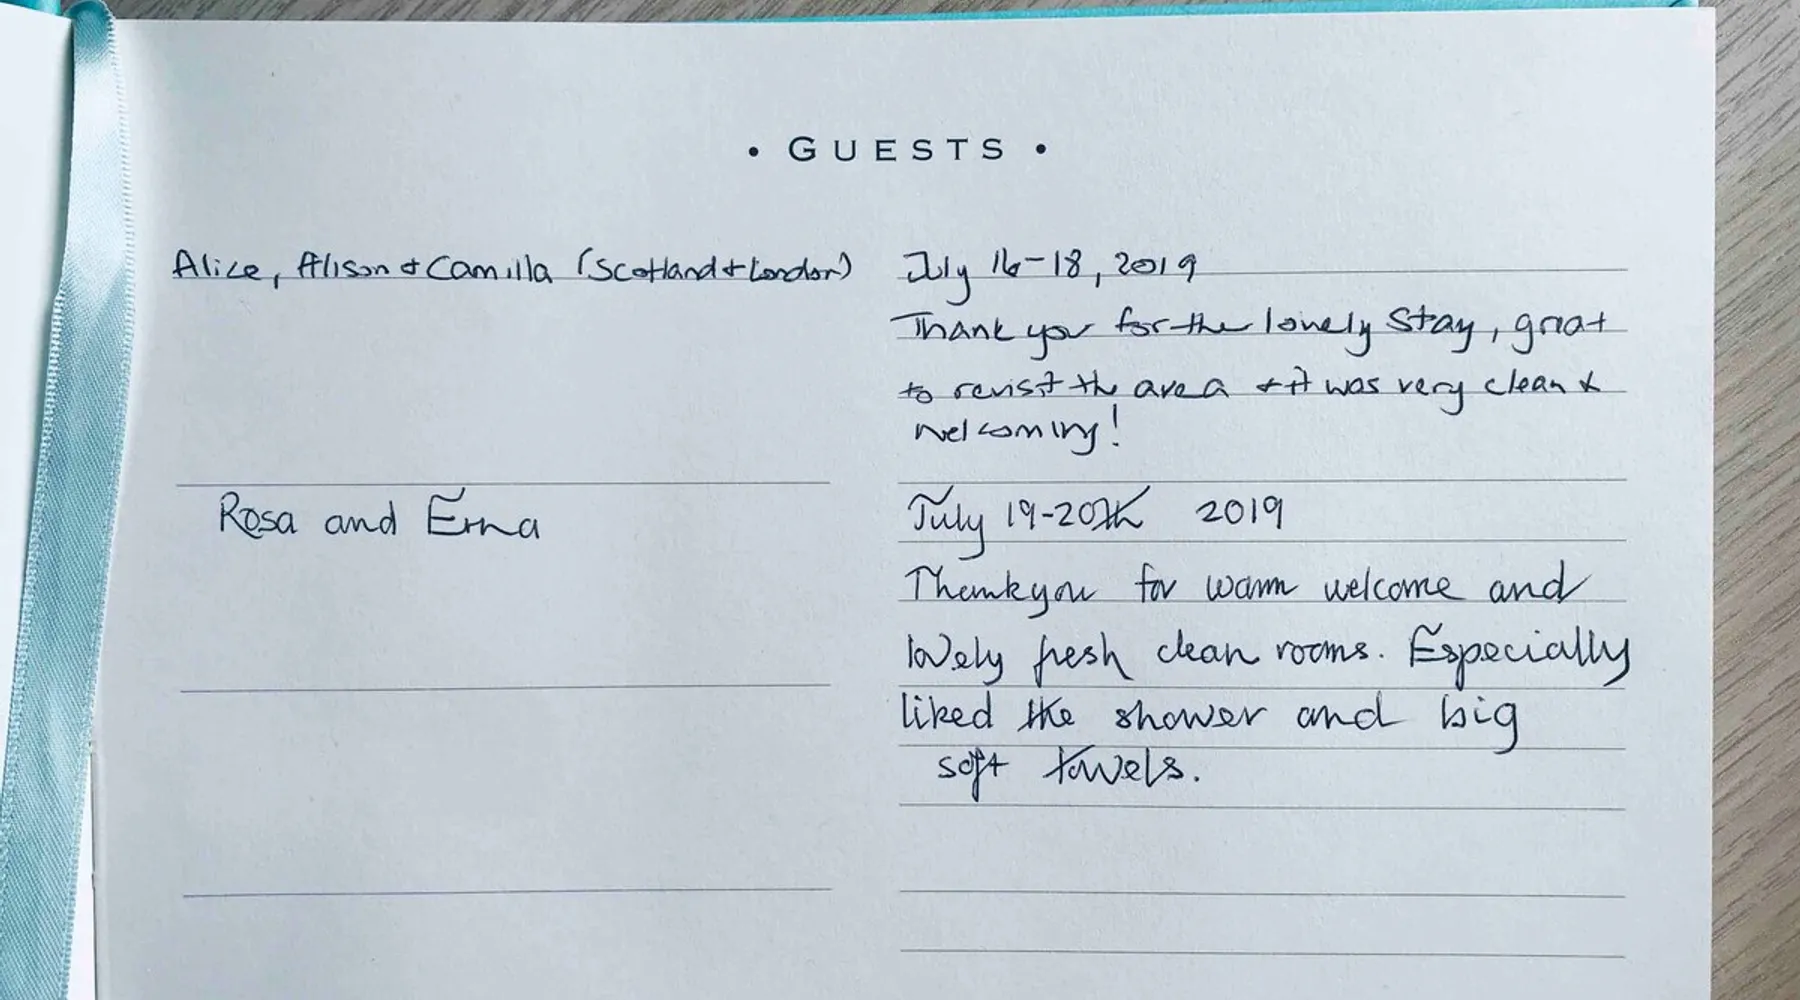 • GUESTS •
Alice, Alison + Camilla (Scotland + London)
July 16-18, 2019
Thank you for the lovely stay, great
to revisit the area + it was very clean &
welcoming!
Rosa and Erna
July 19-20th 2019
Thankyou for warm welcome and
lovely fresh clean rooms. Especially
liked the shower and big
soft towels.